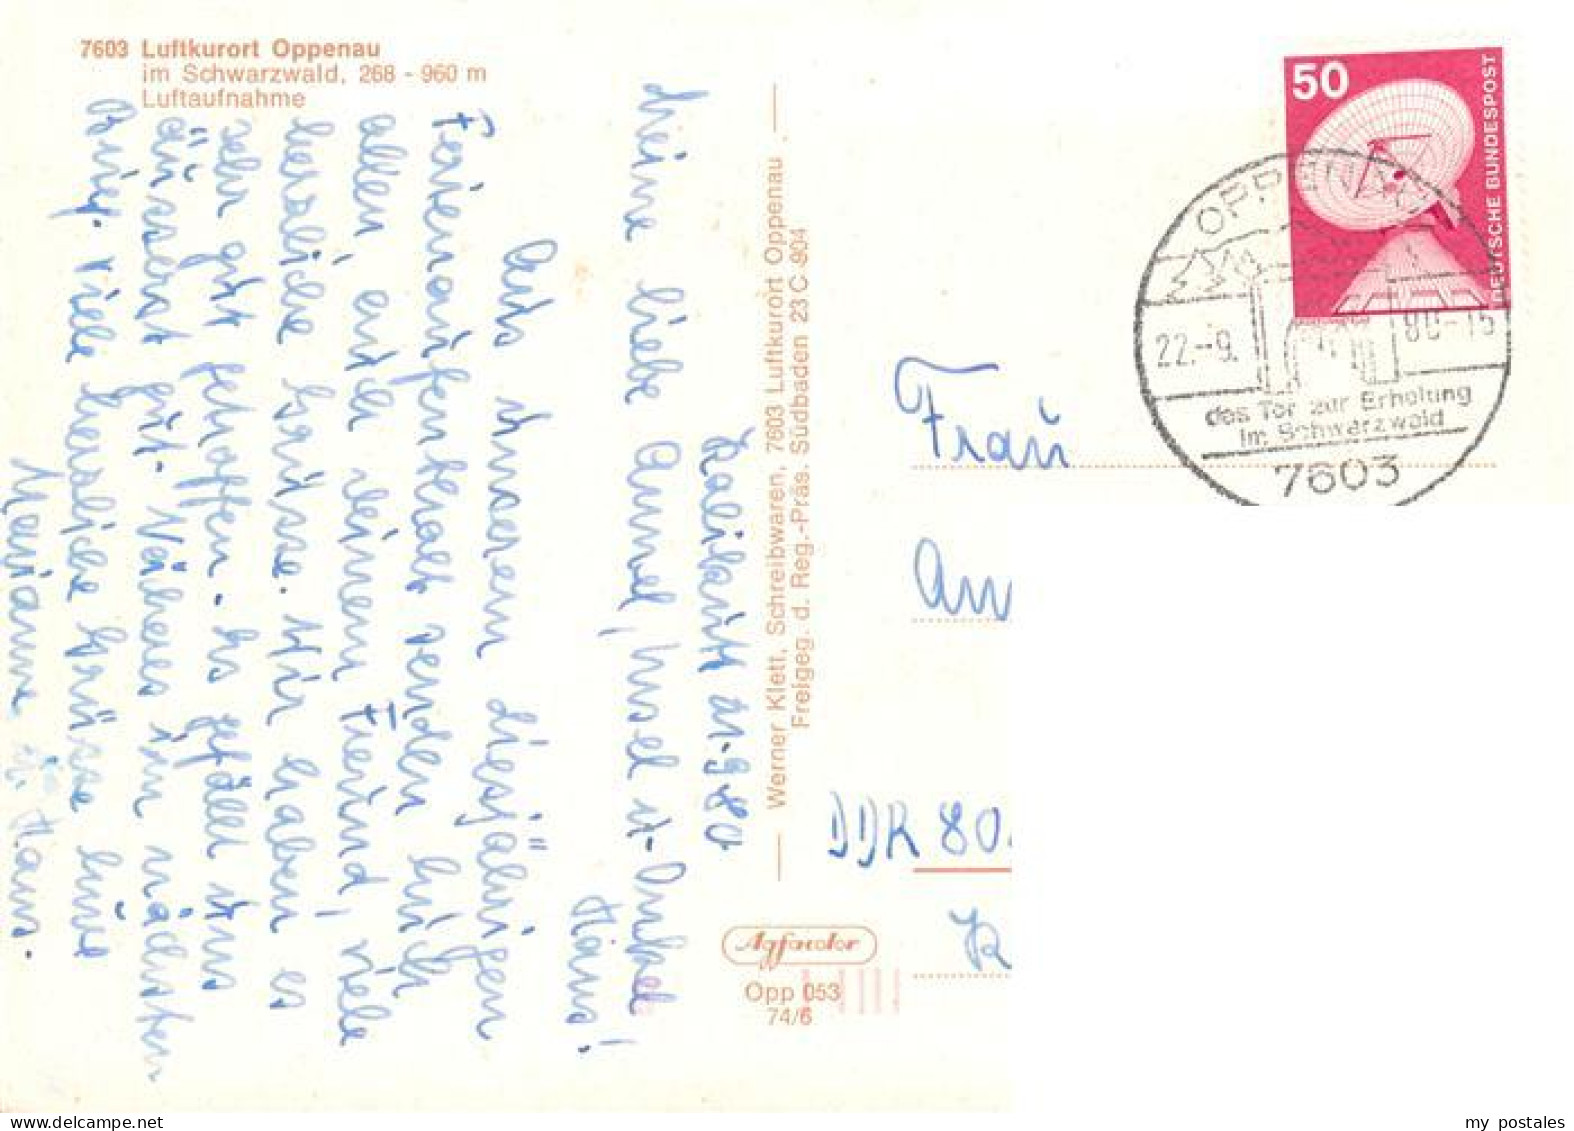 7603 Luftkurort Oppenau
im Schwarzwald, 268 - 960 m
Luftaufnahme
21.9.80
Meine liebe Annel, Insel u. Onkel
Hans!
Aus unserem diesjährigen
Ferienaufenthalt senden wir
allen, auch deinem Freund, viele
herzliche Grüsse. Wir haben es
sehr gut getroffen. Es gefällt uns
äusserst gut. Näheres im nächsten
Brief. Viele herzliche Grüsse
Marianne u. Hans.
Werner Klett, Schreibwaren, 7603 Luftkurort Oppenau
Freigeg. d. Reg.-Präs. Südbaden 23 C 904
Agfacolor
Opp 053
74/6
50
DEUTSCHE BUNDESPOST
OPPENAU
22.-9. 80-15
das Tor zur Erholung
im Schwarzwald
7603
Frau
DDR 80
my postales